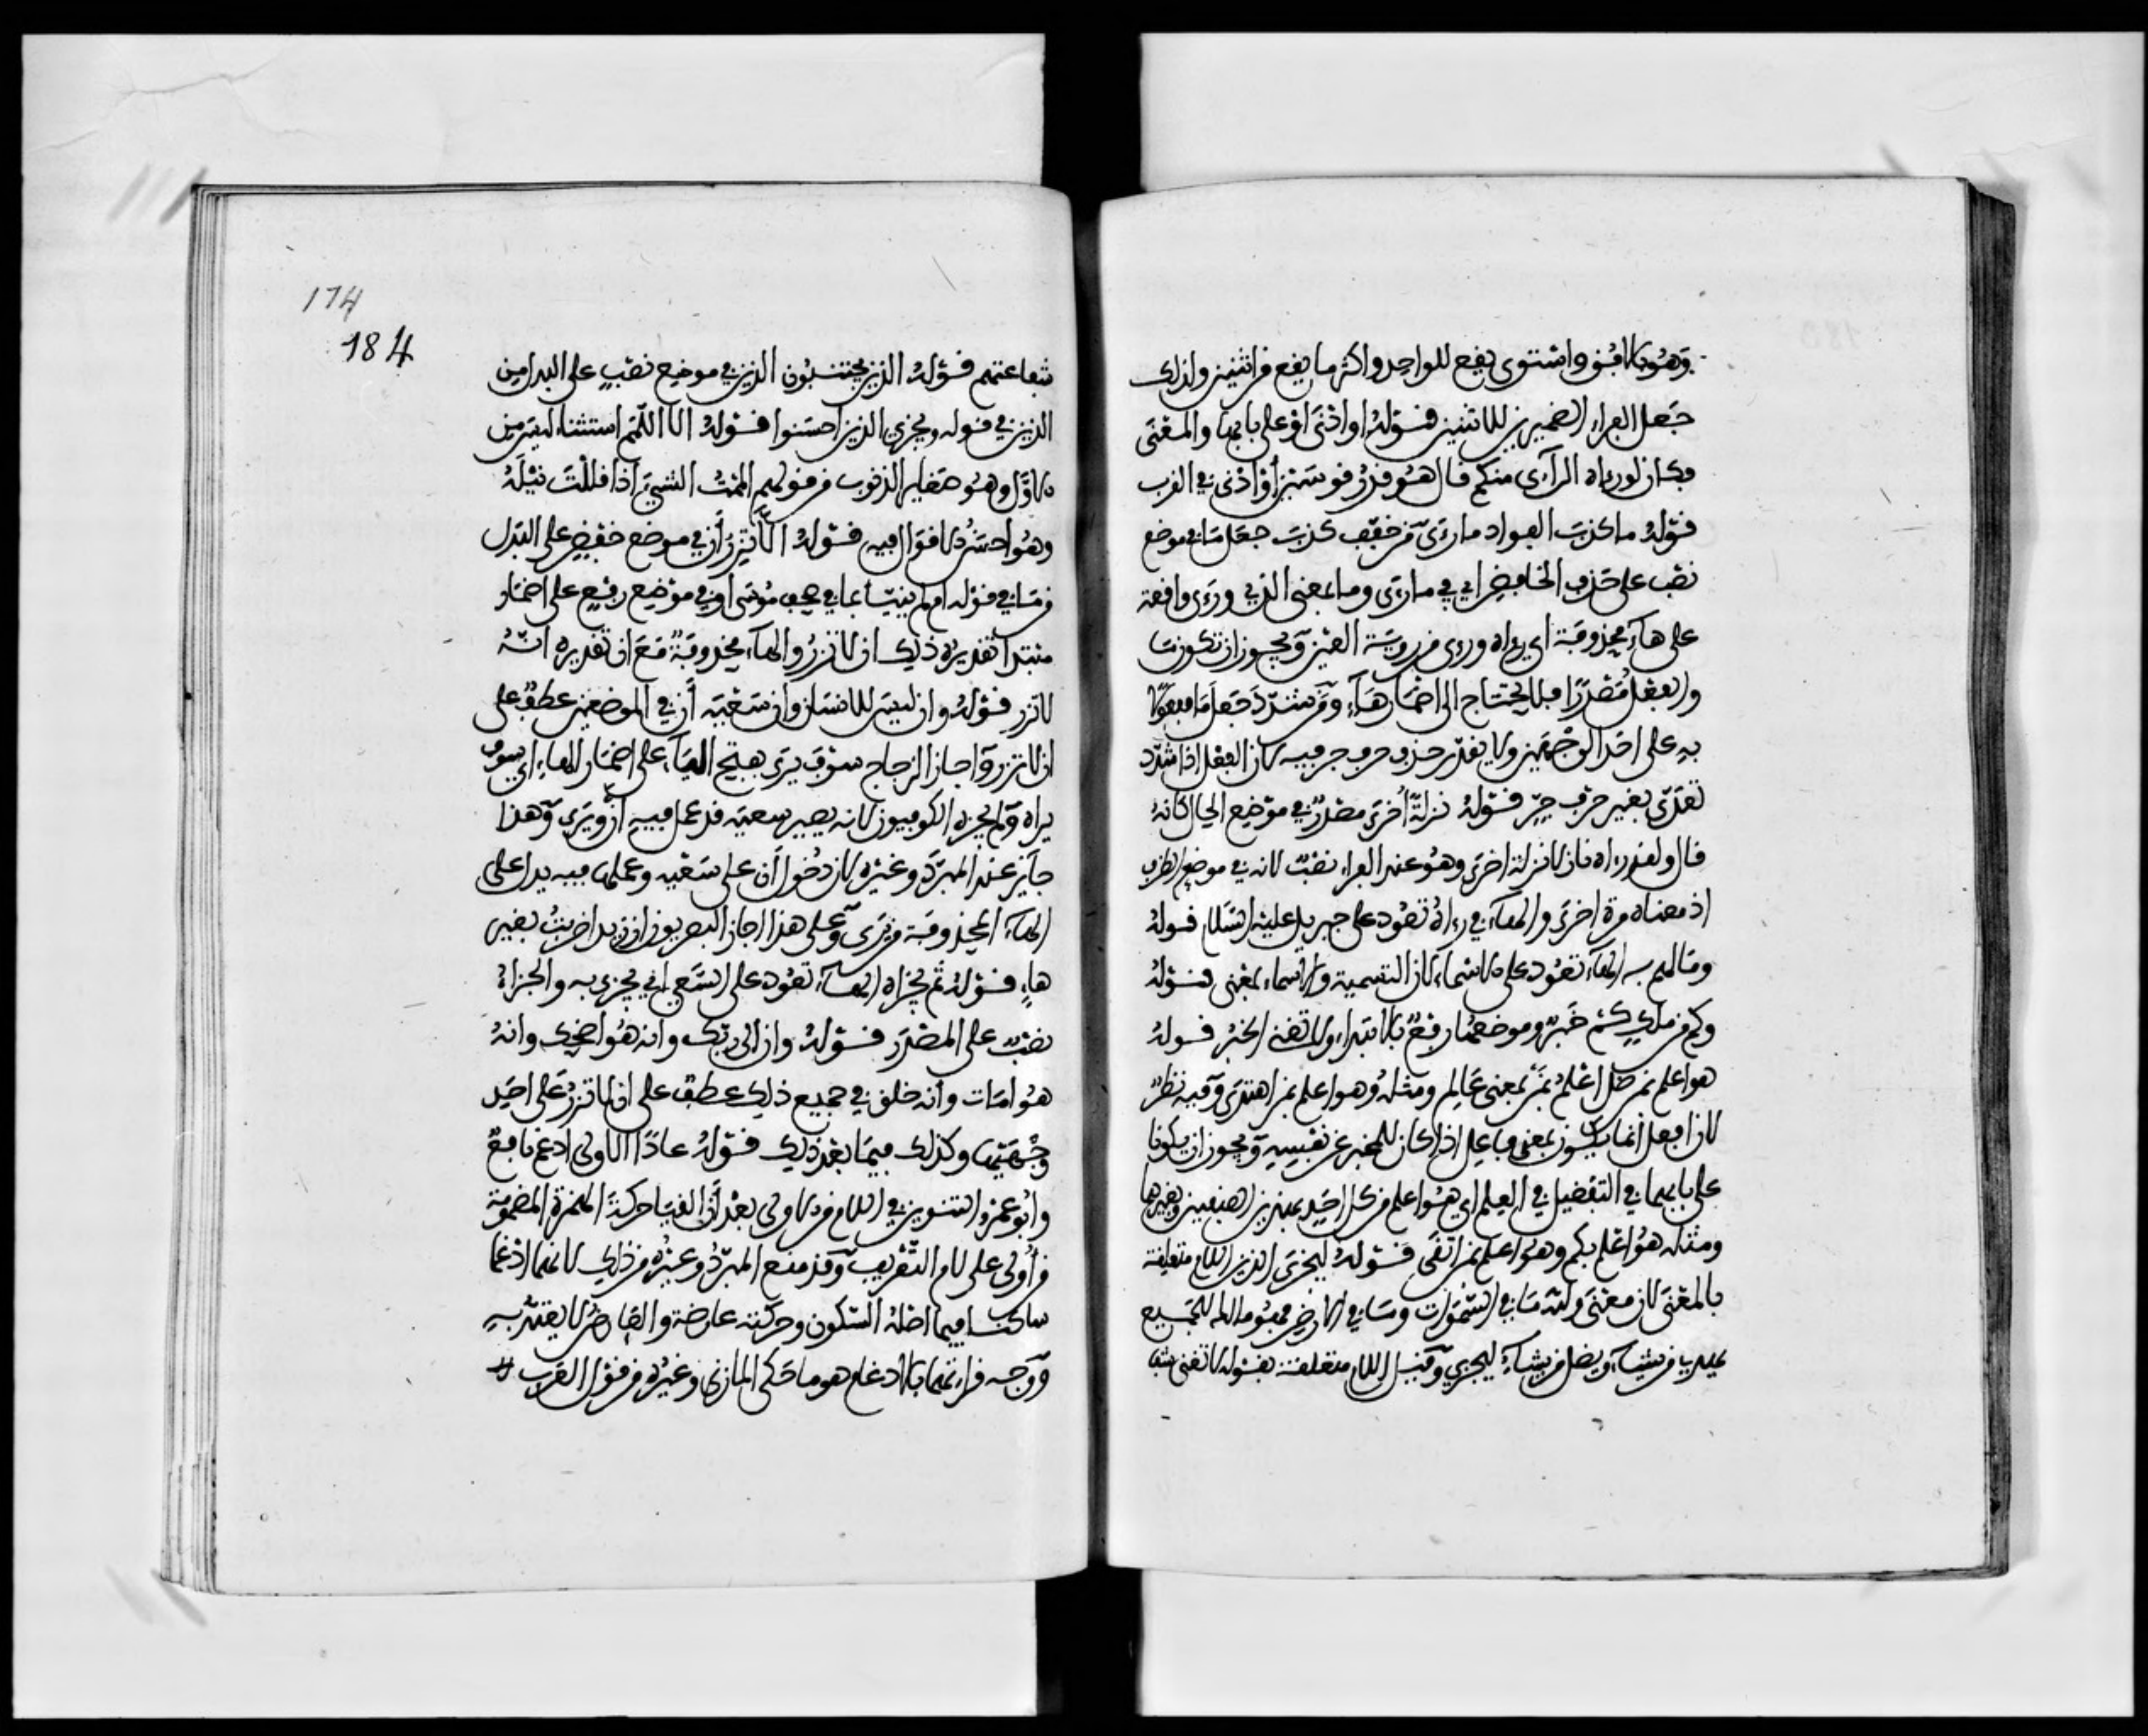 وهو بالافق واستوى يقع للواحد واكثر ما يقع من اثنين ولذلك
جعل الفراء الضميرين للاثنين قوله او ادنى او على بابها والمعنى
فكان لو رءاه الرآءى منكم قال هو قدر قوسين أو ادنى في القرب
قوله ما كذب الفواد ما رءى من خفف كذب جعل ما في موضع
نصب على حذف الخافض اي في ما رءى وما بمعنى الذي ورءى واقعة
على هآء محذوفة اي رءاه ورءى من روية العين ويجوز ان تكون ما
والفعل مصدرا فلا يحتاج الى اضمار هآء ومن شدد جعل ما مفعولا
به على احد الوجهين ولا يقدر حذف حرف جر فيه لان الفعل اذا شدد
تعدى بغير حرف جر قوله نزلة أخرى مصدر في موضع الحال كانه
قال ولقد رءاه نازلا نزلة اخرى وهو عند الفراء نصب لانه في موضع الظرف
اذ معناه مرة اخرى والهآء في رءاه تعود على جبريل عليه السلام قوله
وما لهم به الهآء تعود على الاسماء لان التسمية والاسماء بمعنى قوله
وكم من ملك كم خبر وموضعها رفع بالابتداء ولا تغنى الخبر قوله
هو اعلم بمن ضل اعلم بمن بمعنى عالم ومثله وهو اعلم بمن اهتدى وفيه نظر
لان افعل انما يكون بمعنى فاعل اذا كان للمخبر عن نفسه ويجوز ان يكونا
على بابهما في التفضيل في العلم اي هو اعلم من كل احد بهذين الصنفين وبغيرهما
ومثله هو اعلم بكم وهو اعلم بمن اتقى قوله ليجزي الذين اللام متعلقة
بالمعنى لان معنى ولله ما في السموات وما في الارض فهو مالك للجميع
يهدي من يشآء ويضل من يشآء ليجزي وقيل اللام متعلقة بقوله لا تغنى شفا
شفاعتهم قوله الذين يجتنبون الذين في موضع نصب على البدل من
الذين في قوله ويجزي الذين احسنوا قوله الا اللمم استثناء ليس من
الاول وهو صغاير الذنوب من قولهم الممت بالشيء اذا قللت نيله
وهو احسن الاقوال فيه قوله الا تزر أن في موضع خفض على البدل
من ما في قوله ام لم ينبأ بما في صحف موسى او في موضع رفع على اضمار
مبتدا تقديره ذلك ان لا تزر والهآء محذوفة مع ان تقديره انه
لا تزر قوله وان ليس للانسان وان سعيه أن في الموضعين عطف على
ان لا تزر وآجاز الزجاج سوف يرى بفتح اليآء على اضمار الهاء اي سوف
يراه ولم يجزه الكوفيون لانه يصير سعيه قد عمل فيه أن ويرى وهذا
جايز عند المبرد وغيره لان دخول أن على سعيه وعملها فيه يدل على
الهآء المحذوفة من يرى وعلى هذا اجاز البصريون ان زيدا ضربت بغير
هاء قوله ثم يجزاه الهآء تعود على السعي اي يجزى به والجزاء
نصب على المصدر قوله وان الى ربك وانه هو اضحك وانه
هو امات وانه خلق في جميع ذلك عطف على ان لا تزر على احد
وجهيها وكذلك فيما بعد ذلك قوله عادا الاولى ادغم نافع
وابو عمرو التنوين في اللام من الاولى بعد أن القيا حركة الهمزة المضمومة
من أولى على لام التعريف وقد منع المبرد وغيره من ذلك لانهما ادغما
ساكنا فيما اصله السكون وحركته عارضة والعارض لا يعتد به
ووجه قراءتهما بالادغام هو ما حكى المازني وغيره من قول العرب
174
184